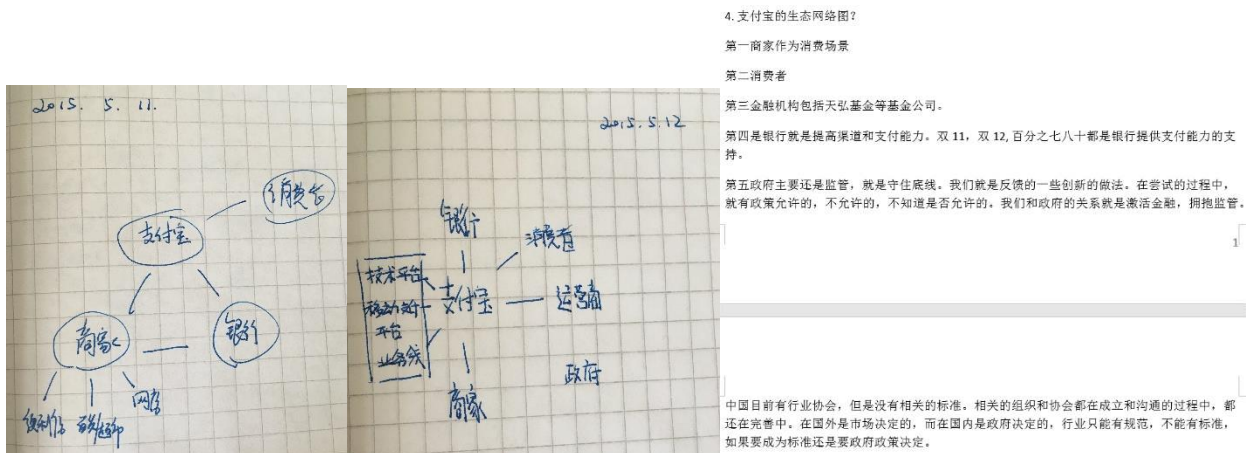 2015. 5. 11.
消费者
支付宝
商家
银行
便利店
网店
2015.5.12
银行
消费者
技术平台
支付宝
运营商
移动支付
平台
业务线
政府
商家
4. 支付宝的生态网络图？
第一商家作为消费场景
第二消费者
第三金融机构包括天弘基金等基金公司。
第四是银行就是提高渠道和支付能力。双 11，双 12, 百分之七八十都是银行提供支付能力的支
持。
第五政府主要还是监管，就是守住底线。我们就是反馈的一些创新的做法。在尝试的过程中，
就有政策允许的，不允许的，不知道是否允许的。我们和政府的关系就是激活金融，拥抱监管。
1
中国目前有行业协会，但是没有相关的标准。相关的组织和协会都在成立和沟通的过程中，都
还在完善中。在国外是市场决定的，而在国内是政府决定的，行业只能有规范，不能有标准，
如果要成为标准还是要政府政策决定。